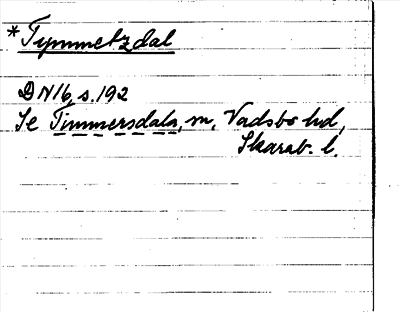 *Tymmetzdal
DN 16, s. 192
Se Timmersdala, sn, Vadsbo hd,
Skarab. l.